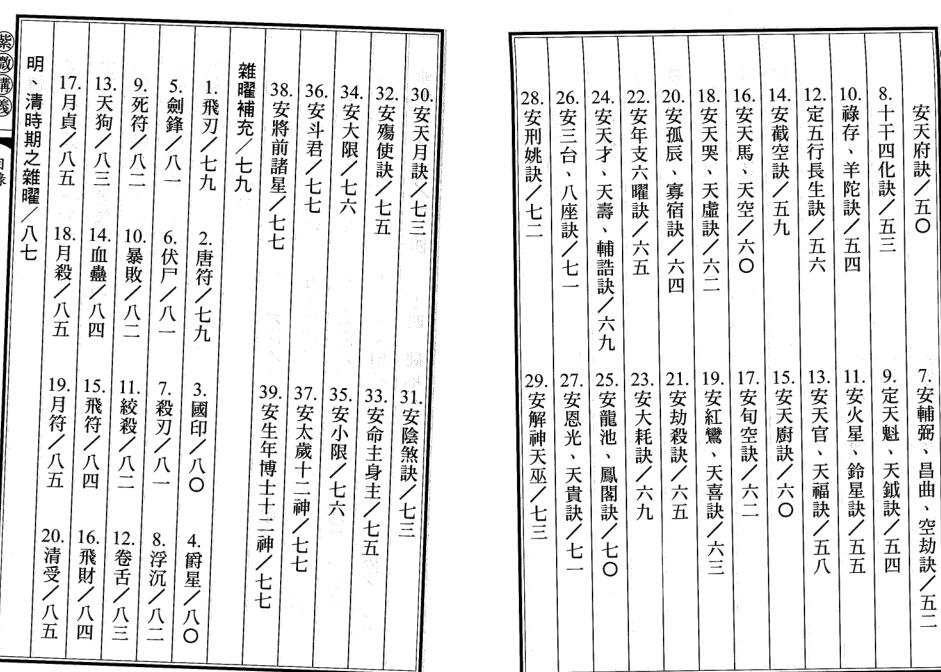 安天府訣／五〇
7. 安輔弼、昌曲、空劫訣／五二
8. 十干四化訣／五三
9. 定天魁、天鉞訣／五四
10. 祿存、羊陀訣／五四
11. 安火星、鈴星訣／五五
12. 定五行長生訣／五六
13. 安天官、天福訣／五八
14. 安截空訣／五九
15. 安天廚訣／六〇
16. 安天馬、天空／六〇
17. 安旬空訣／六二
18. 安天哭、天虛訣／六二
19. 安紅鸞、天喜訣／六三
20. 安孤辰、寡宿訣／六四
21. 安劫殺訣／六五
22. 安年支六曜訣／六五
23. 安大耗訣／六九
24. 安天才、天壽、輔誥訣／六九
25. 安龍池、鳳閣訣／七〇
26. 安三台、八座訣／七一
27. 安恩光、天貴訣／七一
28. 安刑姚訣／七二
29. 安解神天巫／七三
30. 安天月訣／七三
31. 安陰煞訣／七三
32. 安殤使訣／七五
33. 安命主身主／七五
34. 安大限／七六
35. 安小限／七六
36. 安斗君／七七
37. 安太歲十二神／七七
38. 安將前諸星／七七
39. 安生年博士十二神／七七
雜曜補充／七九
1. 飛刃／七九
2. 唐符／七九
3. 國印／八〇
4. 爵星／八〇
5. 劍鋒／八一
6. 伏尸／八一
7. 殺刃／八一
8. 浮沉／八二
9. 死符／八二
10. 暴敗／八二
11. 絞殺／八二
12. 卷舌／八三
13. 天狗／八三
14. 血蠱／八四
15. 飛符／八四
16. 飛財／八四
17. 月貞／八五
18. 月殺／八五
19. 月符／八五
20. 清受／八五
明、清時期之雜曜／八七
紫微講義一
目錄